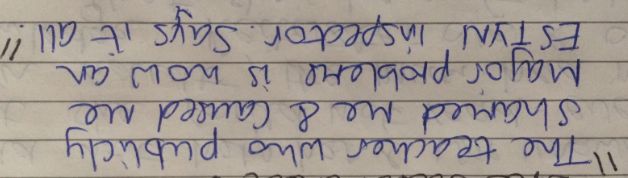 "The teacher who publicly
shamed me & caused me
Major problems is now an
ESTYN inspector. Says it all"